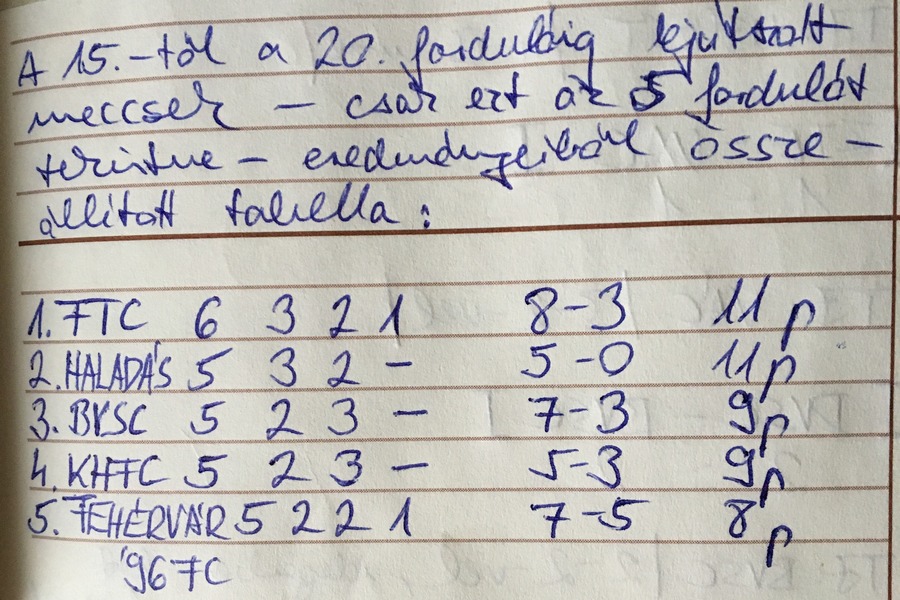 A 15.-től a 20. fordulóig lejátszott
meccsek – csak ezt az 5 fordulót
tekintve – eredményeiből össze –
állított tabella:
1. FTC 6 3 2 1 8-3 11 p
2. HALADÁS 5 3 2 – 5-0 11 p
3. BVSC 5 2 3 – 7-3 9 p
4. KHTC 5 2 3 – 5-3 9 p
5. FEHÉRVÁR 5 2 2 1 7-5 8 p
'96 TC